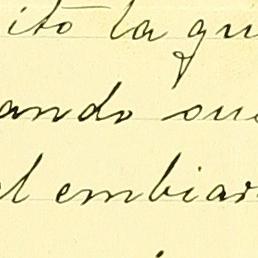 ito la qu
ando sus
el embiar